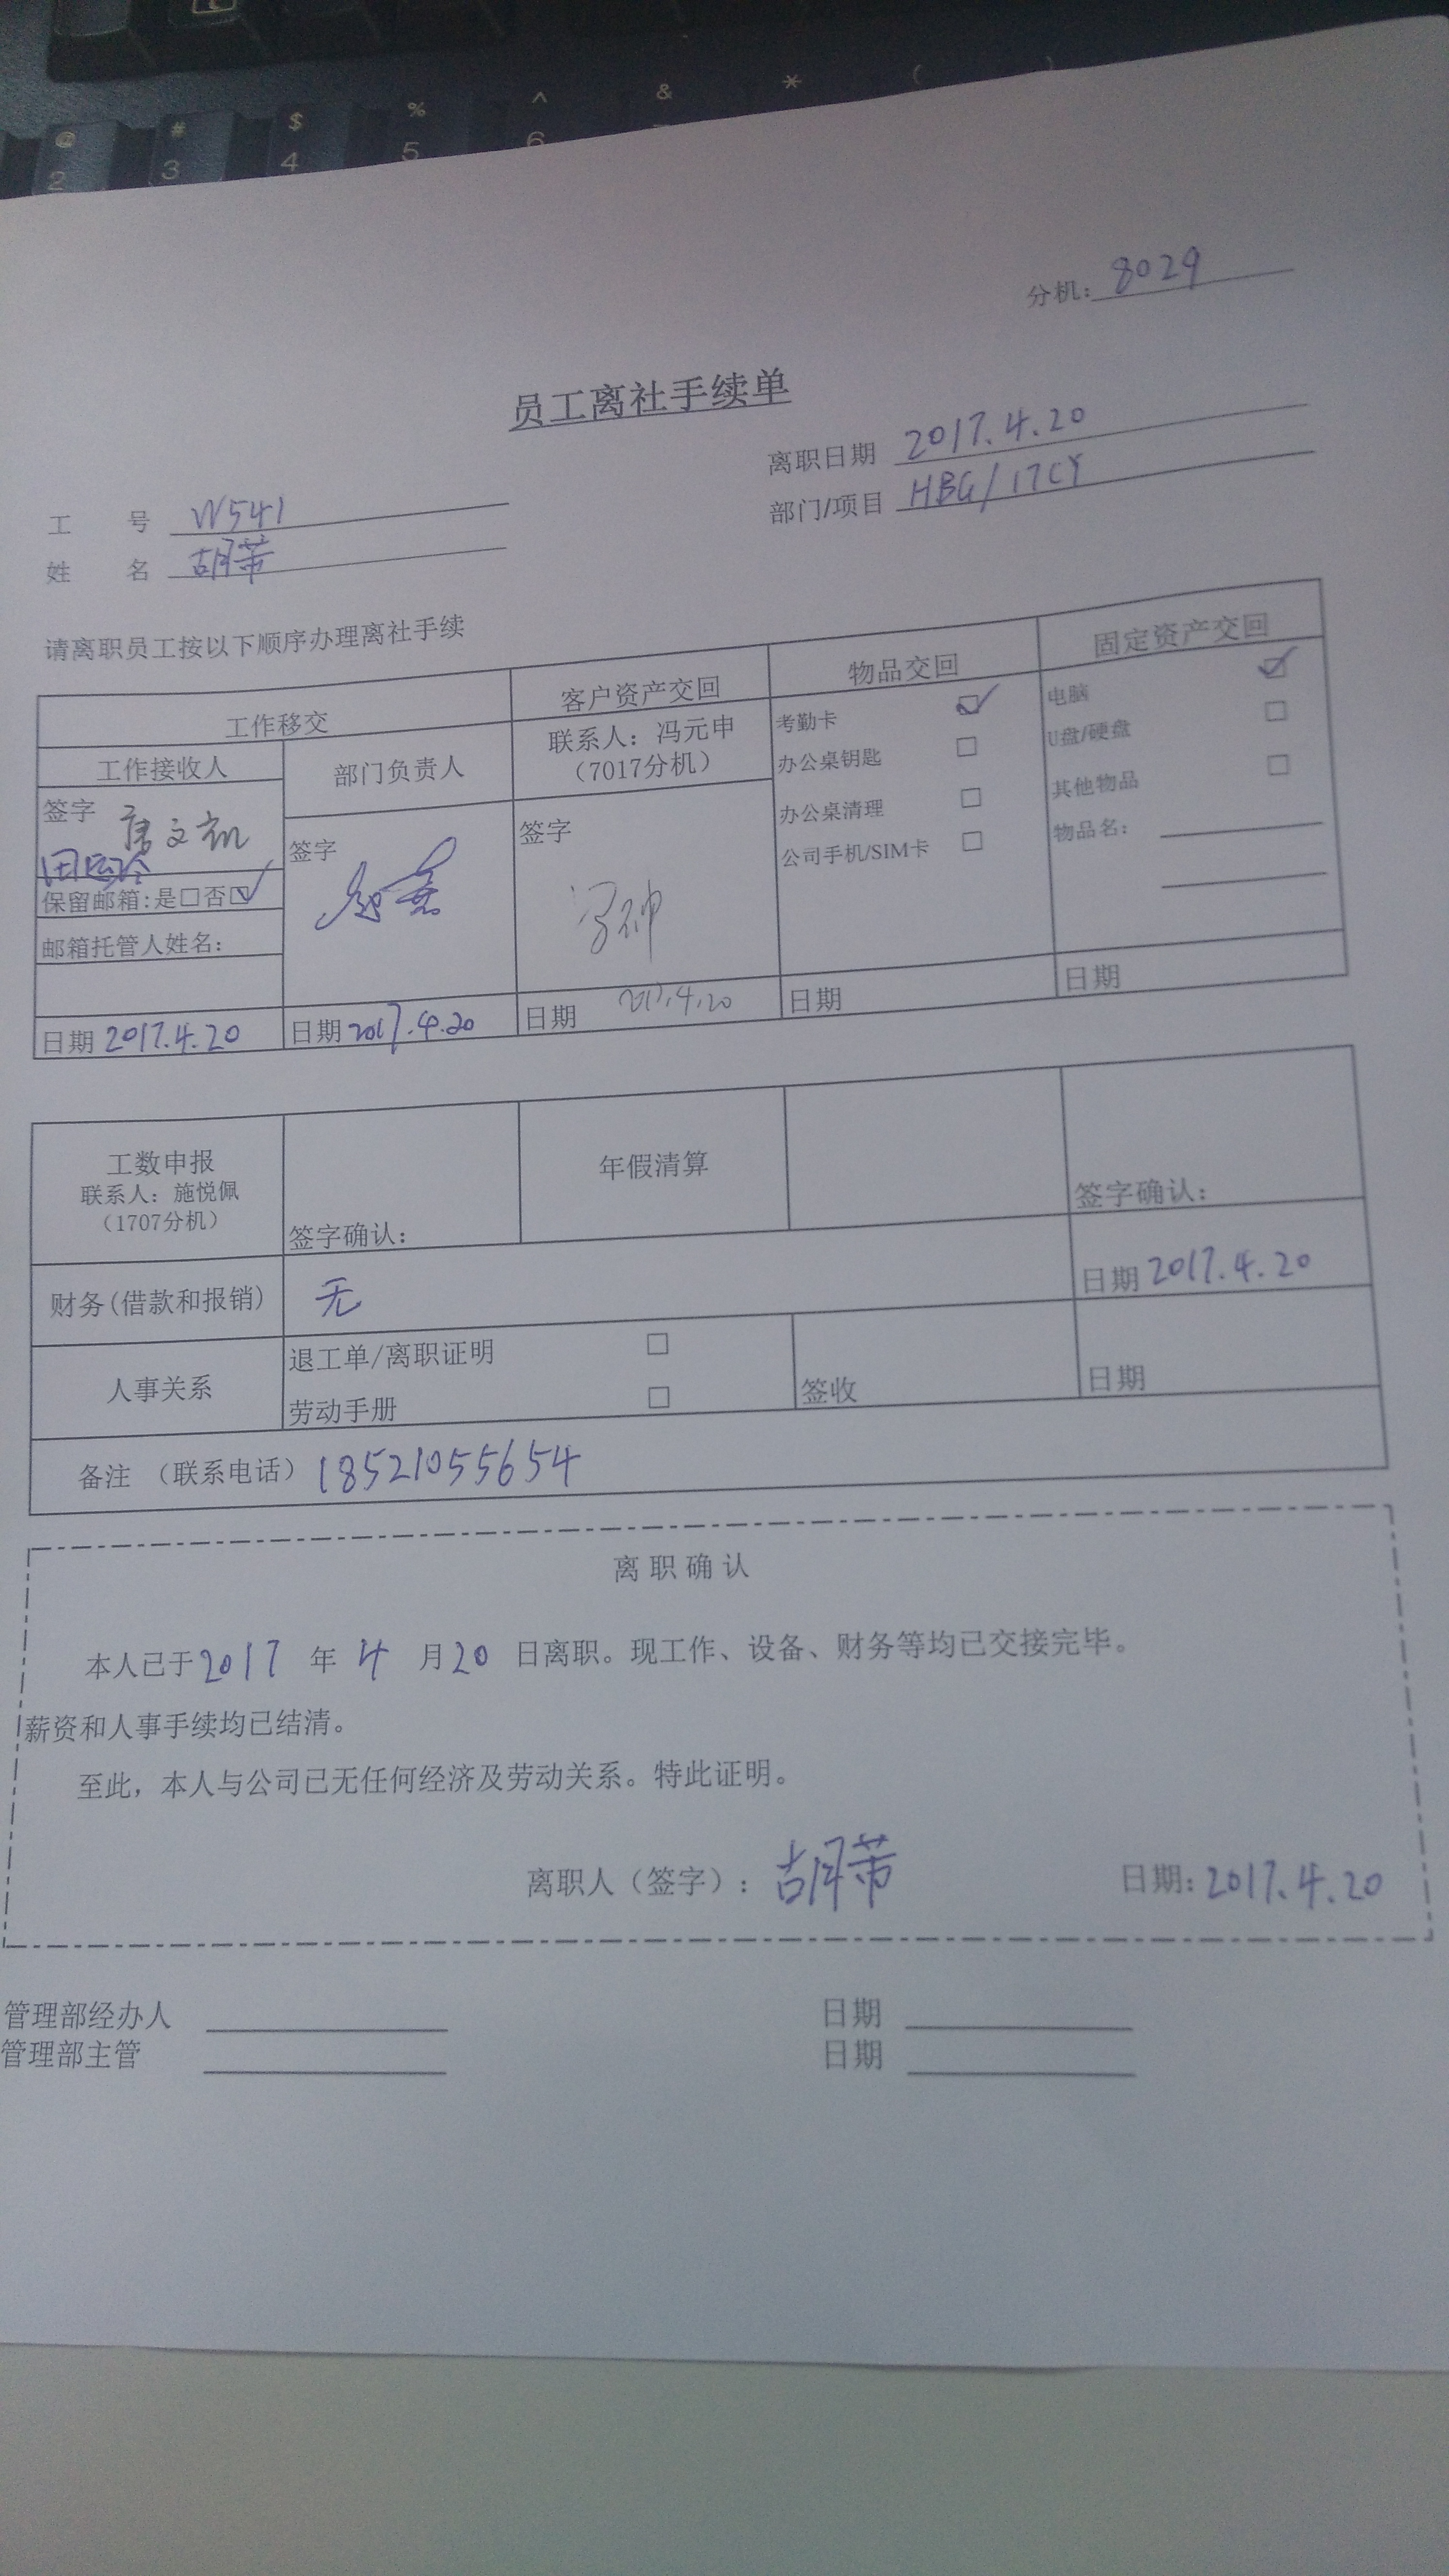 @ # $ % ^ & * ( )
2 3 4 5 6
分机: 8029
员工离社手续单
离职日期 2017.4.20
工 号 W541
部门/项目 HBG/17CY
姓 名 胡蒂
请离职员工按以下顺序办理离社手续
工作移交 客户资产交回 物品交回 固定资产交回
工作接收人 部门负责人 联系人: 冯元申
(7017分机)
考勤卡 ☑ 电脑 ☑
办公桌钥匙 □ U盘/硬盘 □
办公桌清理 □ 其他物品 □
公司手机/SIM卡 □ 物品名:
签字 唐文凯 签字 签字
保留邮箱:是□否☑
邮箱托管人姓名:
日期 2017.4.20 日期 2017.4.20 日期 2017.4.20 日期 日期
工数申报 年假清算
联系人: 施悦佩
(1707分机)
签字确认: 签字确认:
财务(借款和报销) 无 日期 2017.4.20
人事关系 退工单/离职证明 □
劳动手册 □ 签收 日期
备注 (联系电话) 18521055654
离职确认
本人已于2017 年 4 月20 日离职。现工作、设备、财务等均已交接完毕。
薪资和人事手续均已结清。
至此, 本人与公司已无任何经济及劳动关系。特此证明。
离职人(签字): 胡蒂 日期: 2017.4.20
管理部经办人 日期
管理部主管 日期